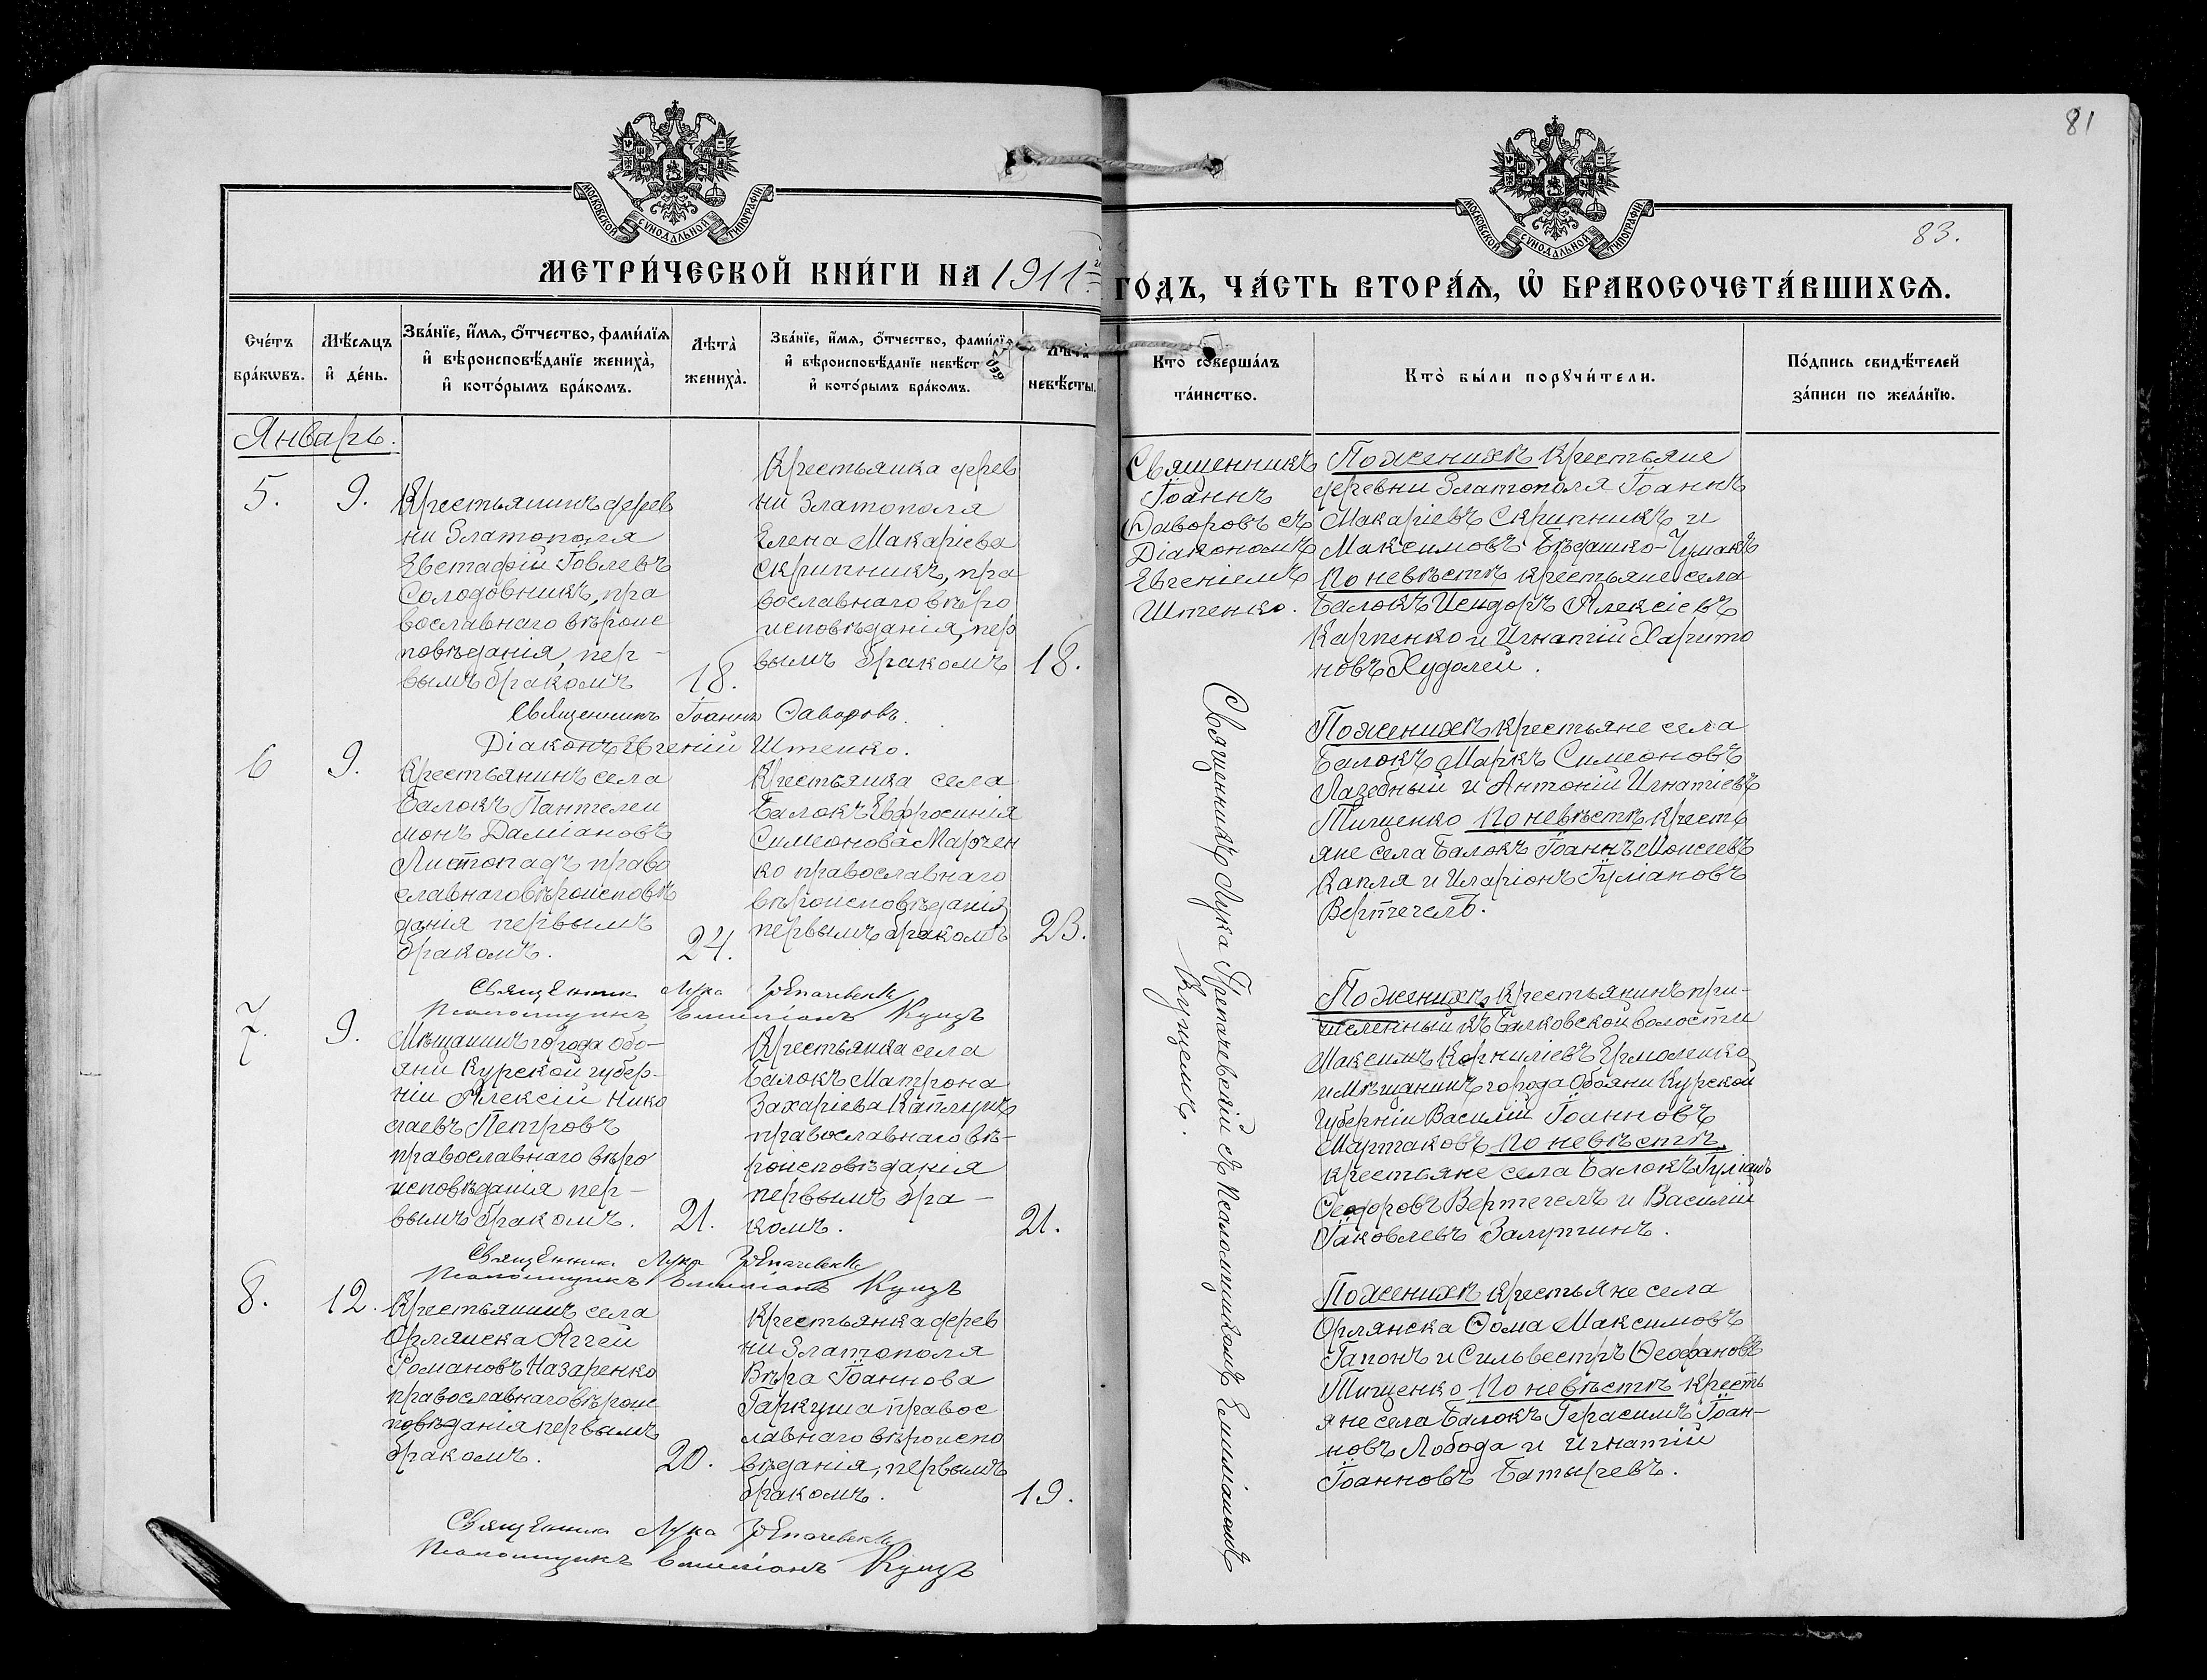 81
МОСКОВСКОЙ СѴНОДАЛЬНОЙ ТИПОГРАФІИ
МОСКОВСКОЙ СѴНОДАЛЬНОЙ ТИПОГРАФІИ
83.
МЕТРИ́ЧЕСКОЙ КНИ́ГИ НА 1911
ГОДЪ, ЧА́СТЬ ВТОРА́Ѧ, Ѽ БРАКОСОЧЕТА́ВШИХСѦ.
Сче́тъ бра́кѡвъ.
Мѣ́сѧцъ и҆ де́нь.
Зва́нїе, и҆́мѧ, ѻ҆́тчество, фами́лїѧ
и҆ вѣроисповѣ́данїе жениха̀,
и҆ кото́рымъ бра́комъ.
Лѣта̀ жениха̀.
Зва́нїе, и҆́мѧ, ѻ҆́тчество, фами́лїѧ
и҆ вѣроисповѣ́данїе невѣ́ст
и҆ кото́рымъ бра́комъ.
Лѣта̀ невѣ́сты.
Кто̀ соверша́лъ
та́инство.
Кто̀ бы́ли порꙋчи́тели.
По́дпись свидѣ́телей
за́писи по жела́нїю.
Январь.
5. 9.
Крестьянинъ дерев
ни Златополя
Евстафій Іовлевъ
Солодовникъ, пра
вославнаго вѣроис
повѣданія, пер-
вымъ бракомъ
18.
Крестьянка дерев
ни Златополя
Елена Макаріева
Скрипникъ, пра
вославнаго вѣро
исповѣданія, пер
вымъ бракомъ
18.
Священникъ
Іоаннъ
Ѳаворовъ съ
Діакономъ
Евгеніемъ
Штенко.
По женихѣ крестьяне
деревни Златополя Іоаннъ
Макаріевъ Скрипникъ и
Максимовъ Бѣдашко-Чумакъ
По невѣстѣ крестьяне села
Балокъ Исидоръ Алексіевъ
Карпенко и Игнатій Харито
новъ Худолей.
Священникъ Іоаннъ Ѳаворовъ.
Діаконъ Евгеній Штенко.
6 9.
Крестьянинъ села
Балокъ Пантелеи
монъ Даміановъ
Листопадъ право
славнаго вѣроисповѣ
данія первымъ
бракомъ.
24.
Крестьянка села
Балокъ Евфросинія
Симеонова Марчен
ко православнаго
вѣроисповѣданія
первымъ бракомъ
23.
По женихѣ крестьяне села
Балокъ Маркъ Симеоновъ
Лазебный и Антоній Игнатіевъ
Тищенко По невѣстѣ кресть
яне села Балокъ Іоаннъ Моисеевъ
Капля и Иларіонъ Іуліановъ
Вертегелъ.
Священникъ Лука
Псаломщикъ Емиліанъ Куцъ
7. 9.
Мѣщанинъ города Обо-
яни Курской губер-
ніи Алексій Нико
лаевъ Петровъ
православнаго вѣро
исповѣданія пер-
вымъ бракомъ.
21.
Крестьянка села
Балокъ Матрона
Захаріева Каплунъ
православнаго вѣ-
роисповѣданія
первымъ бра-
комъ.
21.
По женихѣ крестьянинъ при-
численный къ Балковской волости
Максимъ Корниліевъ Ермоленко
и Мѣщанинъ города Обояни Курской
губерніи Василій Іоанновъ
Мартаковъ По невѣстѣ
крестьяне села Балокъ Іуліанъ
Ѳеодоровъ Вертегелъ и Василій
Іаковлевъ Залупинъ.
Священникъ Лука
Псаломщикъ Емиліанъ Куцъ
8. 12.
Крестьянинъ села
Орлянска Аггей
Романовъ Назаренко
православнаго вѣроис
повѣданія первымъ
бракомъ.
20.
Крестьянка дерев
ни Златополя
Вѣра Іоаннова
Гаркуша правос
лавнаго вѣроиспо
вѣданія, первымъ
бракомъ.
19.
По женихѣ крестьяне села
Орлянска Ѳома Максимовъ
Гапонъ и Сильвестръ Ѳеофановъ
Тищенко По невѣстѣ кресть
яне села Балокъ Герасимъ Іоан-
новъ Лобода и Игнатій
Іоанновъ Батыревъ.
Священникъ Лука
Псаломщикъ Емиліанъ Куцъ
Священникъ Лука съ Псаломщикомъ Емиліаномъ
Куцемъ.